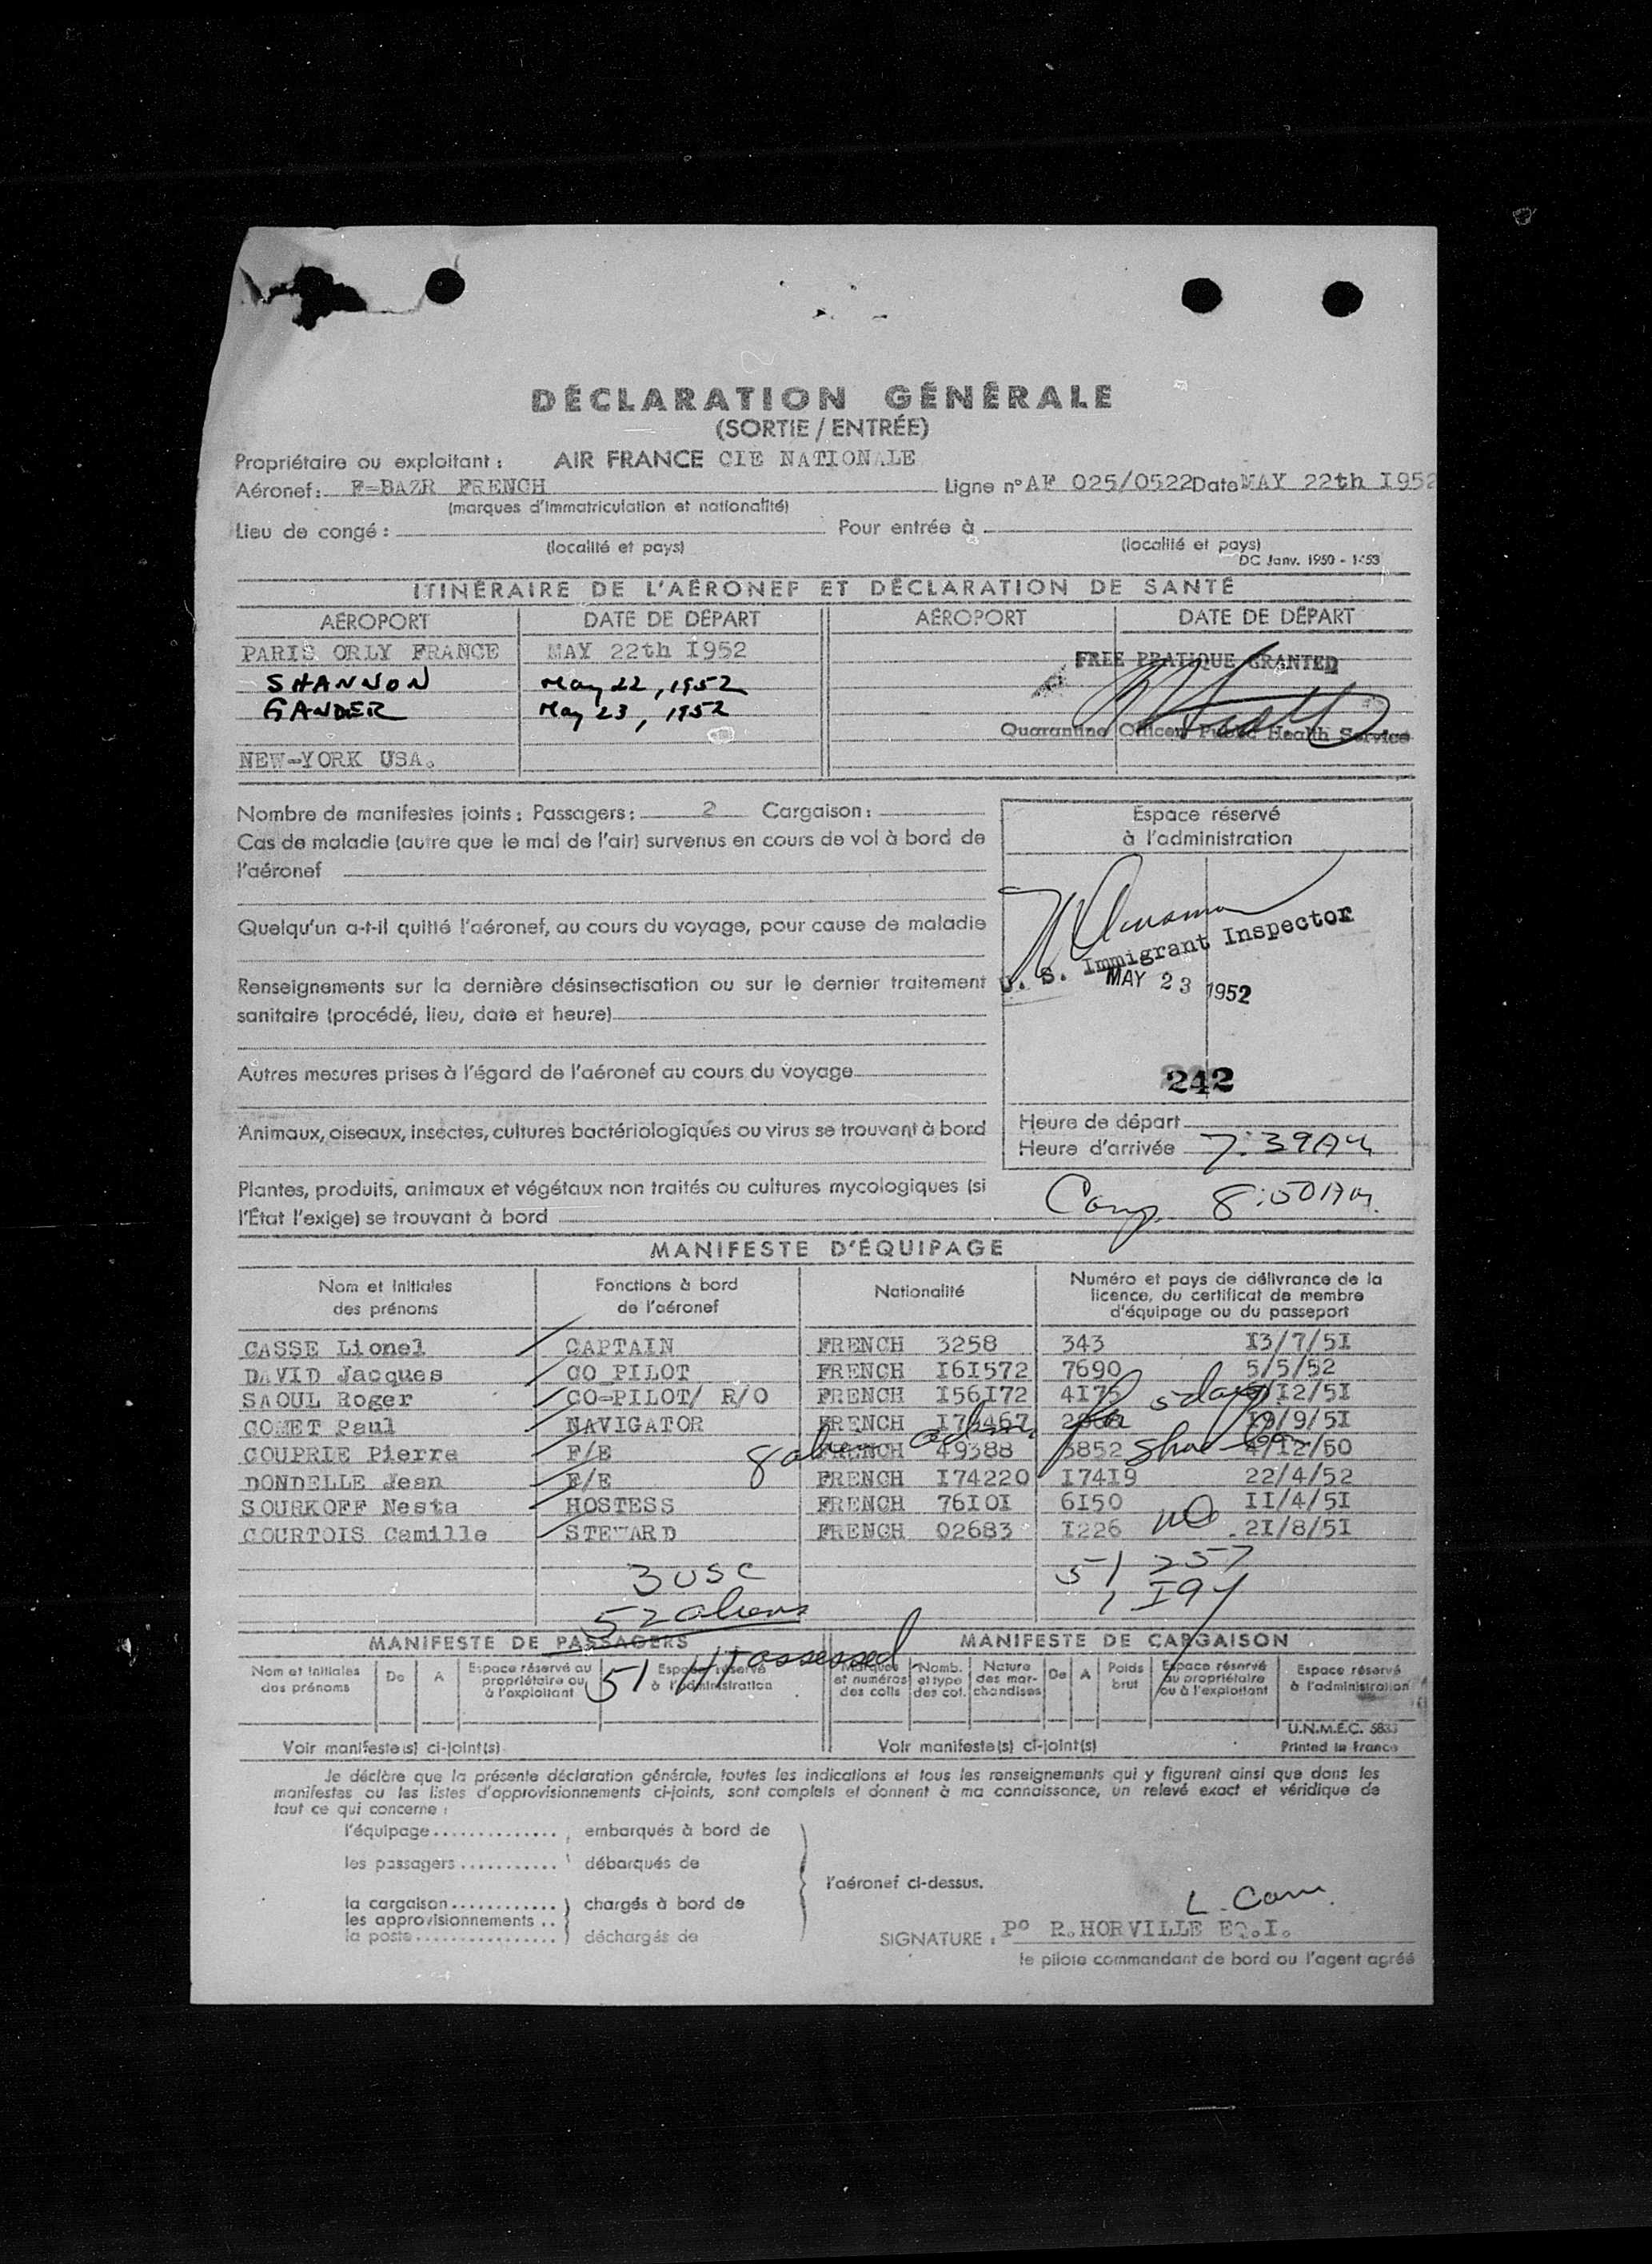 DÉCLARATION GÉNÉRALE
(SORTIE / ENTRÉE)
Propriétaire ou exploitant : AIR FRANCE CIE NATIONALE
Aéronef : F=BAZR FRENCH Ligne n° AF 025/0522 Date MAY 22th I952
(marques d'immatriculation et nationalité)
Lieu de congé : Pour entrée à
(localité et pays) (localité et pays)
DC Janv. 1950 - 1453
ITINÉRAIRE DE L'AÉRONEF ET DÉCLARATION DE SANTÉ
AÉROPORT DATE DE DÉPART AÉROPORT DATE DE DÉPART
PARIS ORLY FRANCE MAY 22th I952
FREE PRATIQUE GRANTED
SHANNON May 22, 1952
GANDER May 23, 1952
Quarantine Officer Public Health Service
NEW-YORK USA.
Nombre de manifestes joints : Passagers : 2 Cargaison :
Cas de maladie (autre que le mal de l'air) survenus en cours de vol à bord de
l'aéronef
Quelqu'un a-t-il quitté l'aéronef, au cours du voyage, pour cause de maladie
Renseignements sur la dernière désinsectisation ou sur le dernier traitement
sanitaire (procédé, lieu, date et heure)
Autres mesures prises à l'égard de l'aéronef au cours du voyage
Animaux, oiseaux, insectes, cultures bactériologiques ou virus se trouvant à bord
Plantes, produits, animaux et végétaux non traités ou cultures mycologiques (si
l'État l'exige) se trouvant à bord
Espace réservé
à l'administration
U. S. Immigrant Inspector
MAY 23 1952
242
Heure de départ
Heure d'arrivée 7:39AM
Comp. 8:50AM.
MANIFESTE D'ÉQUIPAGE
Nom et initiales des prénoms Fonctions à bord de l'aéronef Nationalité Numéro et pays de délivrance de la licence, du certificat de membre d'équipage ou du passeport
CASSE Lionel CAPTAIN FRENCH 3258 343 I3/7/5I
DAVID Jacques CO PILOT FRENCH I6I572 7690 5/5/52
SAOUL Roger CO=PILOT/ R/O FRENCH I56I72 4175 /I2/5I
COMET Paul NAVIGATOR FRENCH I9/9/5I
COUPRIE Pierre F/E FRENCH 49388 3852 4/I2/50
DONDELLE Jean F/E FRENCH I74220 I74I9 22/4/52
SOURKOFF Nesta HOSTESS FRENCH 76I0I 6I50 II/4/5I
COURTOIS Camille STEWARD FRENCH 02683 I226 2I/8/5I
8 alien adm. for 5 days
3 USC 51 257
52 aliens 1 I94
51 HT assessed
MANIFESTE DE PASSAGERS MANIFESTE DE CARGAISON
Nom et initiales des prénoms De A Espace réservé au propriétaire ou à l'exploitant Espace réservé à l'administration Marques et numéros des colis Nomb. et type des col. Nature des mar- chandises De A Poids brut Espace réservé au propriétaire ou à l'exploitant Espace réservé à l'administration
U.N.M.E.C.
Voir manifeste(s) ci-joint(s) Voir manifeste(s) ci-joint(s) Printed in France
Je déclare que la présente déclaration générale, toutes les indications et tous les renseignements qui y figurent ainsi que dans les
manifestes ou les listes d'approvisionnements ci-joints, sont complets et donnent à ma connaissance, un relevé exact et véridique de
tout ce qui concerne :
l'équipage .............. , embarqués à bord de
les passagers ........... ' débarqués de
l'aéronef ci-dessus.
la cargaison ............ ) chargés à bord de
les approvisionnements ..
la poste ................ ) déchargés de
SIGNATURE : P° R.HORVILLE EQ.I.
le pilote commandant de bord ou l'agent agréé